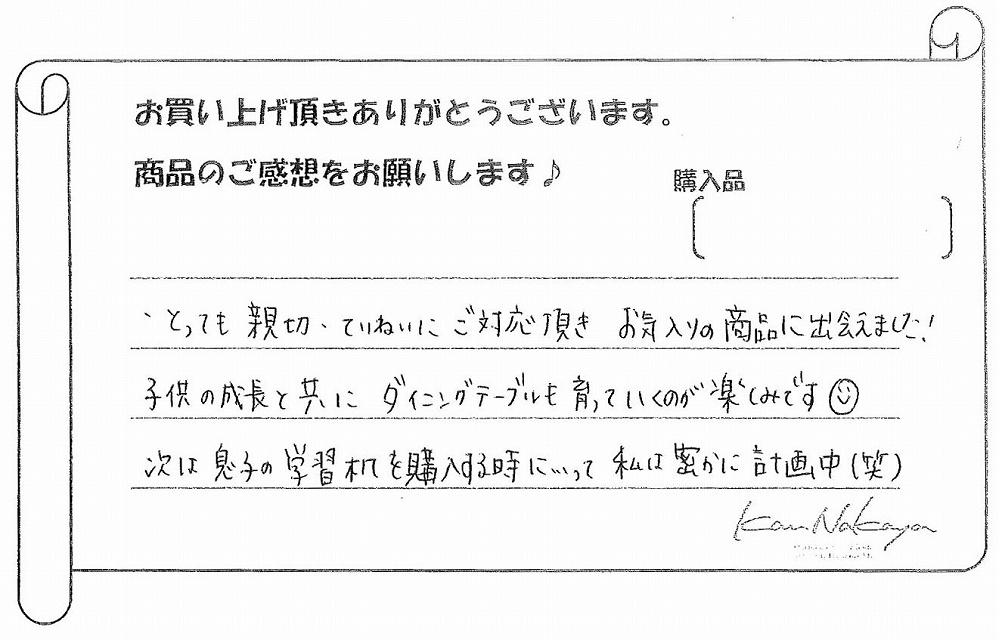 お買い上げ頂きありがとうございます。
商品のご感想をお願いします♪
購入品
、とっても親切、ていねいにご対応頂き お気入りの商品に出会えました!
子供の成長と共に ダイニングテーブルも育っていくのが楽しみです☺
次は息子の学習机を購入する時にいって 私は密かに計画中(笑)